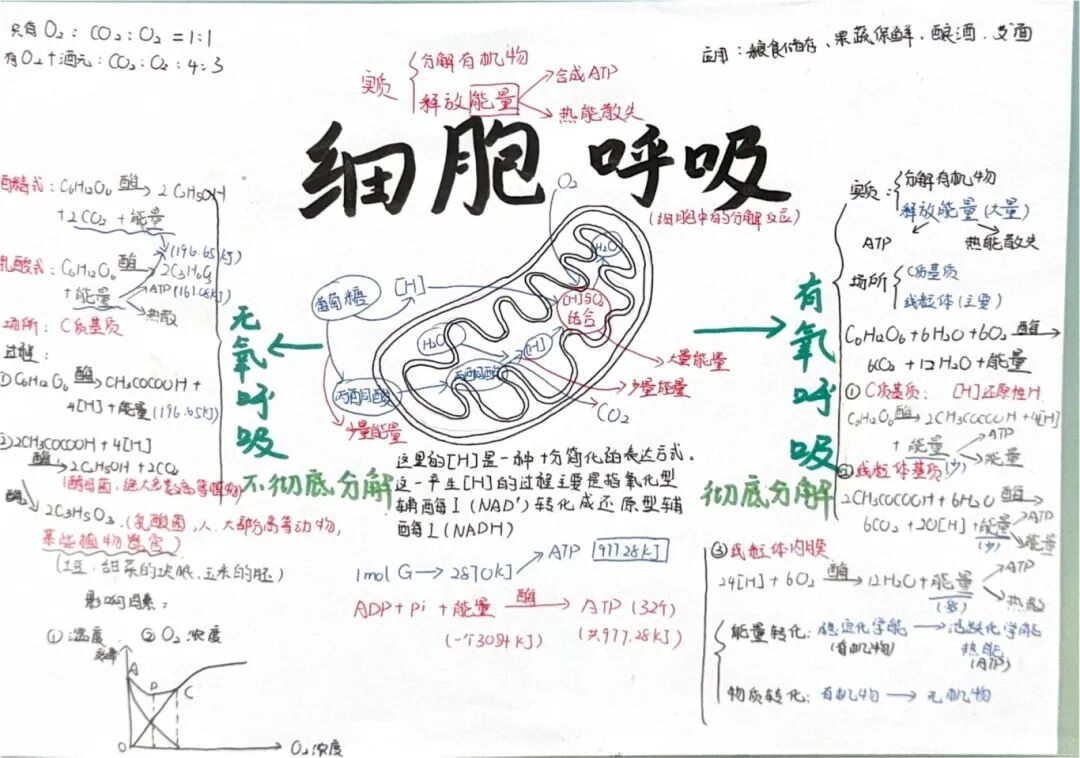 只有O₂:CO₂:O₂=1:1
有O₂+酒元:CO₂:O₂:4:3
实质
分解有机物
释放能量
合成ATP
热能散失
应用:粮食储存、果蔬保鲜、酿酒、发面
细胞呼吸
(细胞中有的分解反应)
酒精式:C₆H₁₂O₆ 酶→ 2C₂H₅OH
+2CO₂+能量
(196.65kJ)
乳酸式:C₆H₁₂O₆ 酶→ 2C₃H₆O₃
+能量
ATP(61.08kJ)
热散
场所:C质基质
过程:
①C₆H₁₂O₆ 酶→ CH₃COCOOH+
4[H]+能量(196.65kJ)
②2CH₃COCOOH+4[H]
酶→2C₂H₅OH+2CO₂
(酵母菌,绝大多数高等植物)
酶
2C₃H₅O₃.(乳酸菌,人、大部分高等动物,
某些植物器官)
(土豆,甜菜的块根,玉米的胚)
影响因素:
①温度 ②O₂浓度
A
D
C
O
O₂浓度
无氧呼吸
不彻底分解
O₂
H₂O
葡萄糖
[H]
[H]与O₂
结合
H₂O
[H]
丙酮酸
丙酮酸
大量能量
少量能量
CO₂
少量能量
这里的[H]是一种十分简化的表达方式.
这一产生[H]的过程主要是指氧化型
辅酶Ⅰ(NAD⁺)转化成还原型辅
酶Ⅰ(NADH)
1mol G→2870kJ
ATP 977.28kJ
ADP+Pi+能量 酶→ ATP(32个)
(一个30.54kJ) (共977.28kJ)
有氧呼吸
彻底分解
实质:
分解有机物
释放能量(大量)
ATP 热能散失
场所
C质基质
线粒体(主要)
C₆H₁₂O₆+6H₂O+6O₂ 酶→
6CO₂+12H₂O+能量
①C质基质: [H]还原性H
C₆H₁₂O₆ 酶→ 2CH₃COCOOH+4[H]
+能量
(少)
ATP
能量
②线粒体基质
2CH₃COCOOH+6H₂O 酶→
6CO₂+20[H]+能量
(少)
ATP
能量
③线粒体内膜
24[H]+6O₂ 酶→12H₂O+能量
(多)
ATP
热散
能量转化:稳定化学能→活跃化学能
(有机物) 热能
(ATP)
物质转化:有机物→无机物